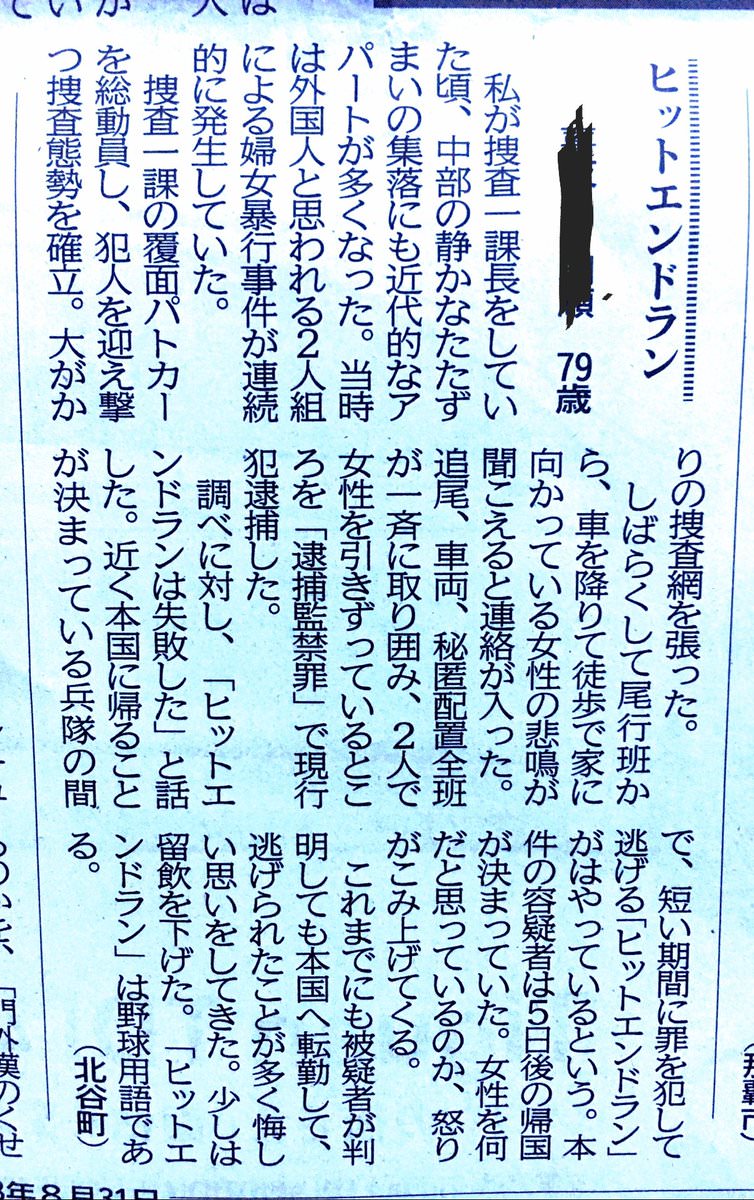 ヒットエンドラン
79歳
私が捜査一課長をしてい
た頃、中部の静かなたたず
まいの集落にも近代的なア
パートが多くなった。当時
は外国人と思われる2人組
による婦女暴行事件が連続
的に発生していた。
捜査一課の覆面パトカー
を総動員し、犯人を迎え撃
つ捜査態勢を確立。大がか
りの捜査網を張った。
しばらくして尾行班か
ら、車を降りて徒歩で家に
向かっている女性の悲鳴が
聞こえると連絡が入った。
追尾、車両、秘匿配置全班
が一斉に取り囲み、2人で
女性を引きずっているとこ
ろを「逮捕監禁罪」で現行
犯逮捕した。
調べに対し、「ヒットエ
ンドランは失敗した」と話
した。近く本国に帰ること
が決まっている兵隊の間
で、短い期間に罪を犯して
逃げる「ヒットエンドラン」
がはやっているという。本
件の容疑者は5日後の帰国
が決まっていた。女性を何
だと思っているのか、怒り
がこみ上げてくる。
これまでにも被疑者が判
明しても本国へ転勤して、
逃げられたことが多く悔し
い思いをしてきた。少しは
留飲を下げた。「ヒットエ
ンドラン」は野球用語であ
る。
(北谷町)
(那覇市)
「門外漢のくせ
年8月31日